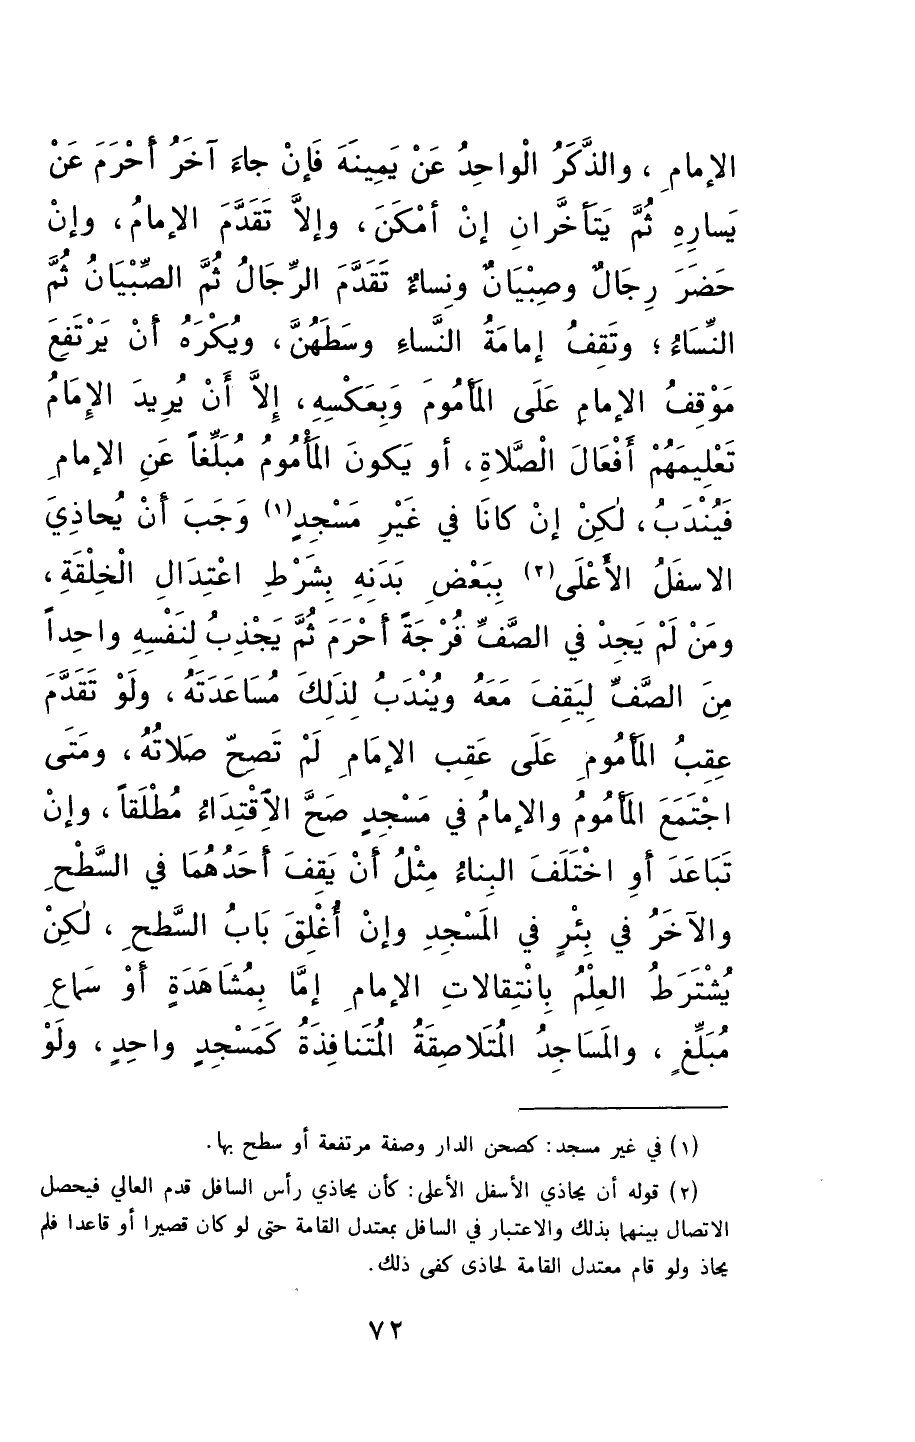 الإمامِ ، والذَّكَرُ الْواحِدُ عَنْ يَمِينَهَ فَإِنْ جاءَ آخَرُ أَحْرَمَ عَنْ
يَسارِهِ ثُمَّ يَتَأَخَّرانِ إنْ أمْكَنَ ، وإلاَّ تَقَدَّمَ الإمامُ ، وإنْ
حَضَرَ رِجَالٌ وصِبْيَانٌ ونِساءٌ تَقَدَّمَ الرِّجَالُ ثُمَّ الصِّبْيَانُ ثُمَّ
النِّسَاءُ ؛ وتَقِفُ إمامَةُ النَّساءِ وسَطَهُنَّ ، ويُكْرَهُ أنْ يَرْتَفِعَ
مَوْقِفُ الإمامِ عَلَى المَأْمُومَ وَبِعَكْسِهِ ، إِلاَّ أَنْ يُرِيدَ الإِمَامُ
تَعْلِيمَهُمْ أَفْعَالَ الْصَّلاةِ ، أو يَكونَ المَأْمُومُ مُبَلِّغاً عَنِ الإمامِ
فَيُنْدَبُ ، لٰكِنْ إنْ كانَا في غَيْرِ مَسْجِدٍ(١) وَجَبَ أنْ يُحاذِيَ
الاسفَلُ الأَعْلَى(٢) بِبَعْضِ بَدَنِهِ بِشَرْطِ اعْتِدَالِ الْخِلْقَةِ ،
ومَنْ لَمْ يَجِدْ في الصَّفِّ فُرْجَةً أحْرَمَ ثُمَّ يَجْذِبُ لِنَفْسِهِ واحِداً
مِنَ الصَّفِّ لِيَقِفَ مَعَهُ ويُنْدَبُ لِذَلِكَ مُسَاعَدَتَهُ ، ولَوْ تَقَدَّمَ
عِقِبُ المَأْمُومِ عَلَى عَقِبِ الإمَامِ لَمْ تَصِحّ صَلاتُهُ ، ومَتَى
اجْتَمَعَ المَأْمُومُ والإمامُ في مَسْجِدٍ صَحَّ الاِقْتِدَاءُ مُطْلَقاً ، وإنْ
تَبَاعَدَ أوِ اخْتَلَفَ البِناءُ مِثْلُ أنْ يَقِفَ أحَدُهُمَا في السَّطْحِ
والآخَرُ في بِئْرٍ في المَسْجِدِ وإنْ أُغْلِقَ بَابُ السَّطحِ ، لٰكِنْ
يُشْتَرَطُ العِلْمُ بِانْتِقالاتِ الإمامِ إمَّا بِمُشَاهَدَةٍ أوْ سَماعِ
مُبَلِّغٍ ، والمَسَاجِدُ المُتَلاصِقَةُ المُتَنافِذَةُ كَمَسْجِدٍ واحِدٍ ، ولَوْ
(١) في غير مسجد : كصحن الدار وصفة مرتفعة أو سطح بها .
(٢) قوله أن يحاذي الأسفل الأعلى : كأن يحاذي رأس السافل قدم العالي فيحصل
الاتصال بينهما بذلك والاعتبار في السافل بمعتدل القامة حتى لو كان قصيرا أو قاعدا فلم
يحاذ ولو قام معتدل القامة لحاذى كفى ذلك .
٧٢